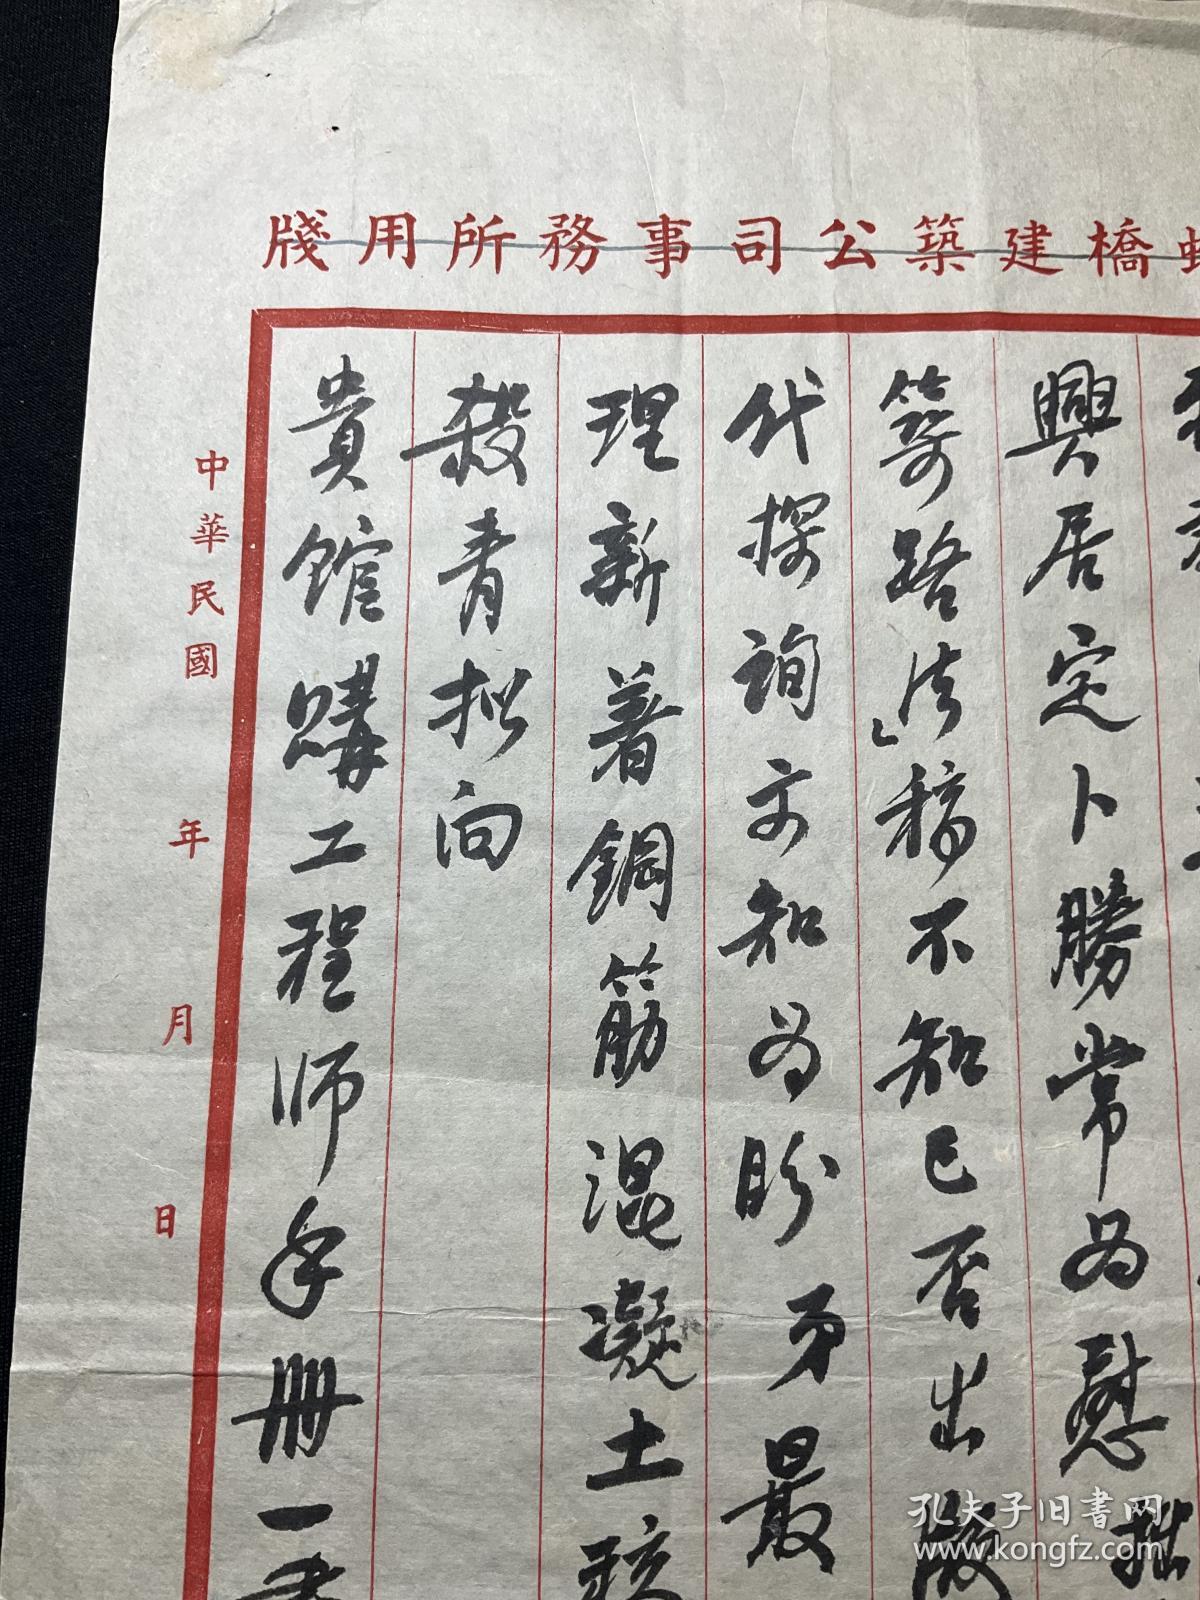 橋建築公司事務所用牋
興居定卜勝常为慰拙
築路法」稿不知已否出版
代探询示知为盼弟最
理新著鋼筋混凝土
殺青拟向
貴館購工程师手册一
中華民國 年 月 日
孔夫子旧書网
www.kongfz.com